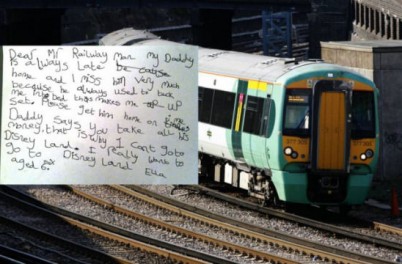 Dear Mr Railway Man my Daddy
is always Late be cause
home and I miss him very much
because he always used to tuck
me into bed this makes me up
set. Please get him home on time
Daddy says you take all his
money, that is why I cant go to
Disney Land. I really want to
go to Disney Land Ella
aged 6.
377